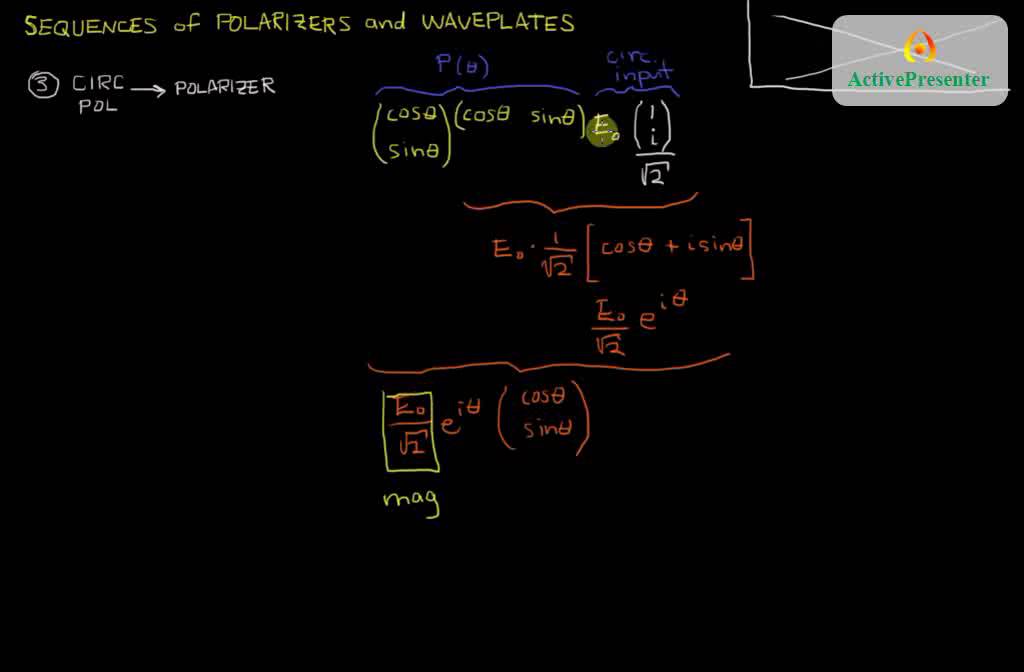 SEQUENCES of POLARIZERS and WAVEPLATES
ActivePresenter
③ CIRC POL → POLARIZER
P(θ)
circ. input
(cosθ sinθ) (cosθ sinθ) E₀ (1 i) / √2
E₀ · 1/√2 [cosθ + i sinθ]
E₀/√2 e^{iθ}
E₀/√2 e^{iθ} (cosθ sinθ)
mag